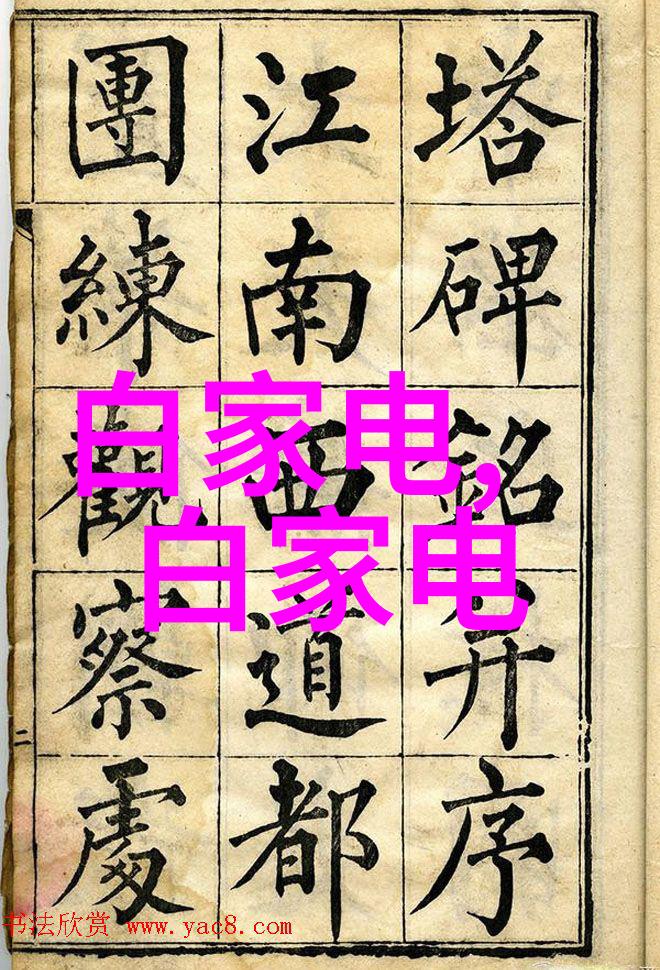 塔碑銘并序
江南西道都
團練觀察處
白家电,
白家电
二
书法欣赏 www.yac8.com